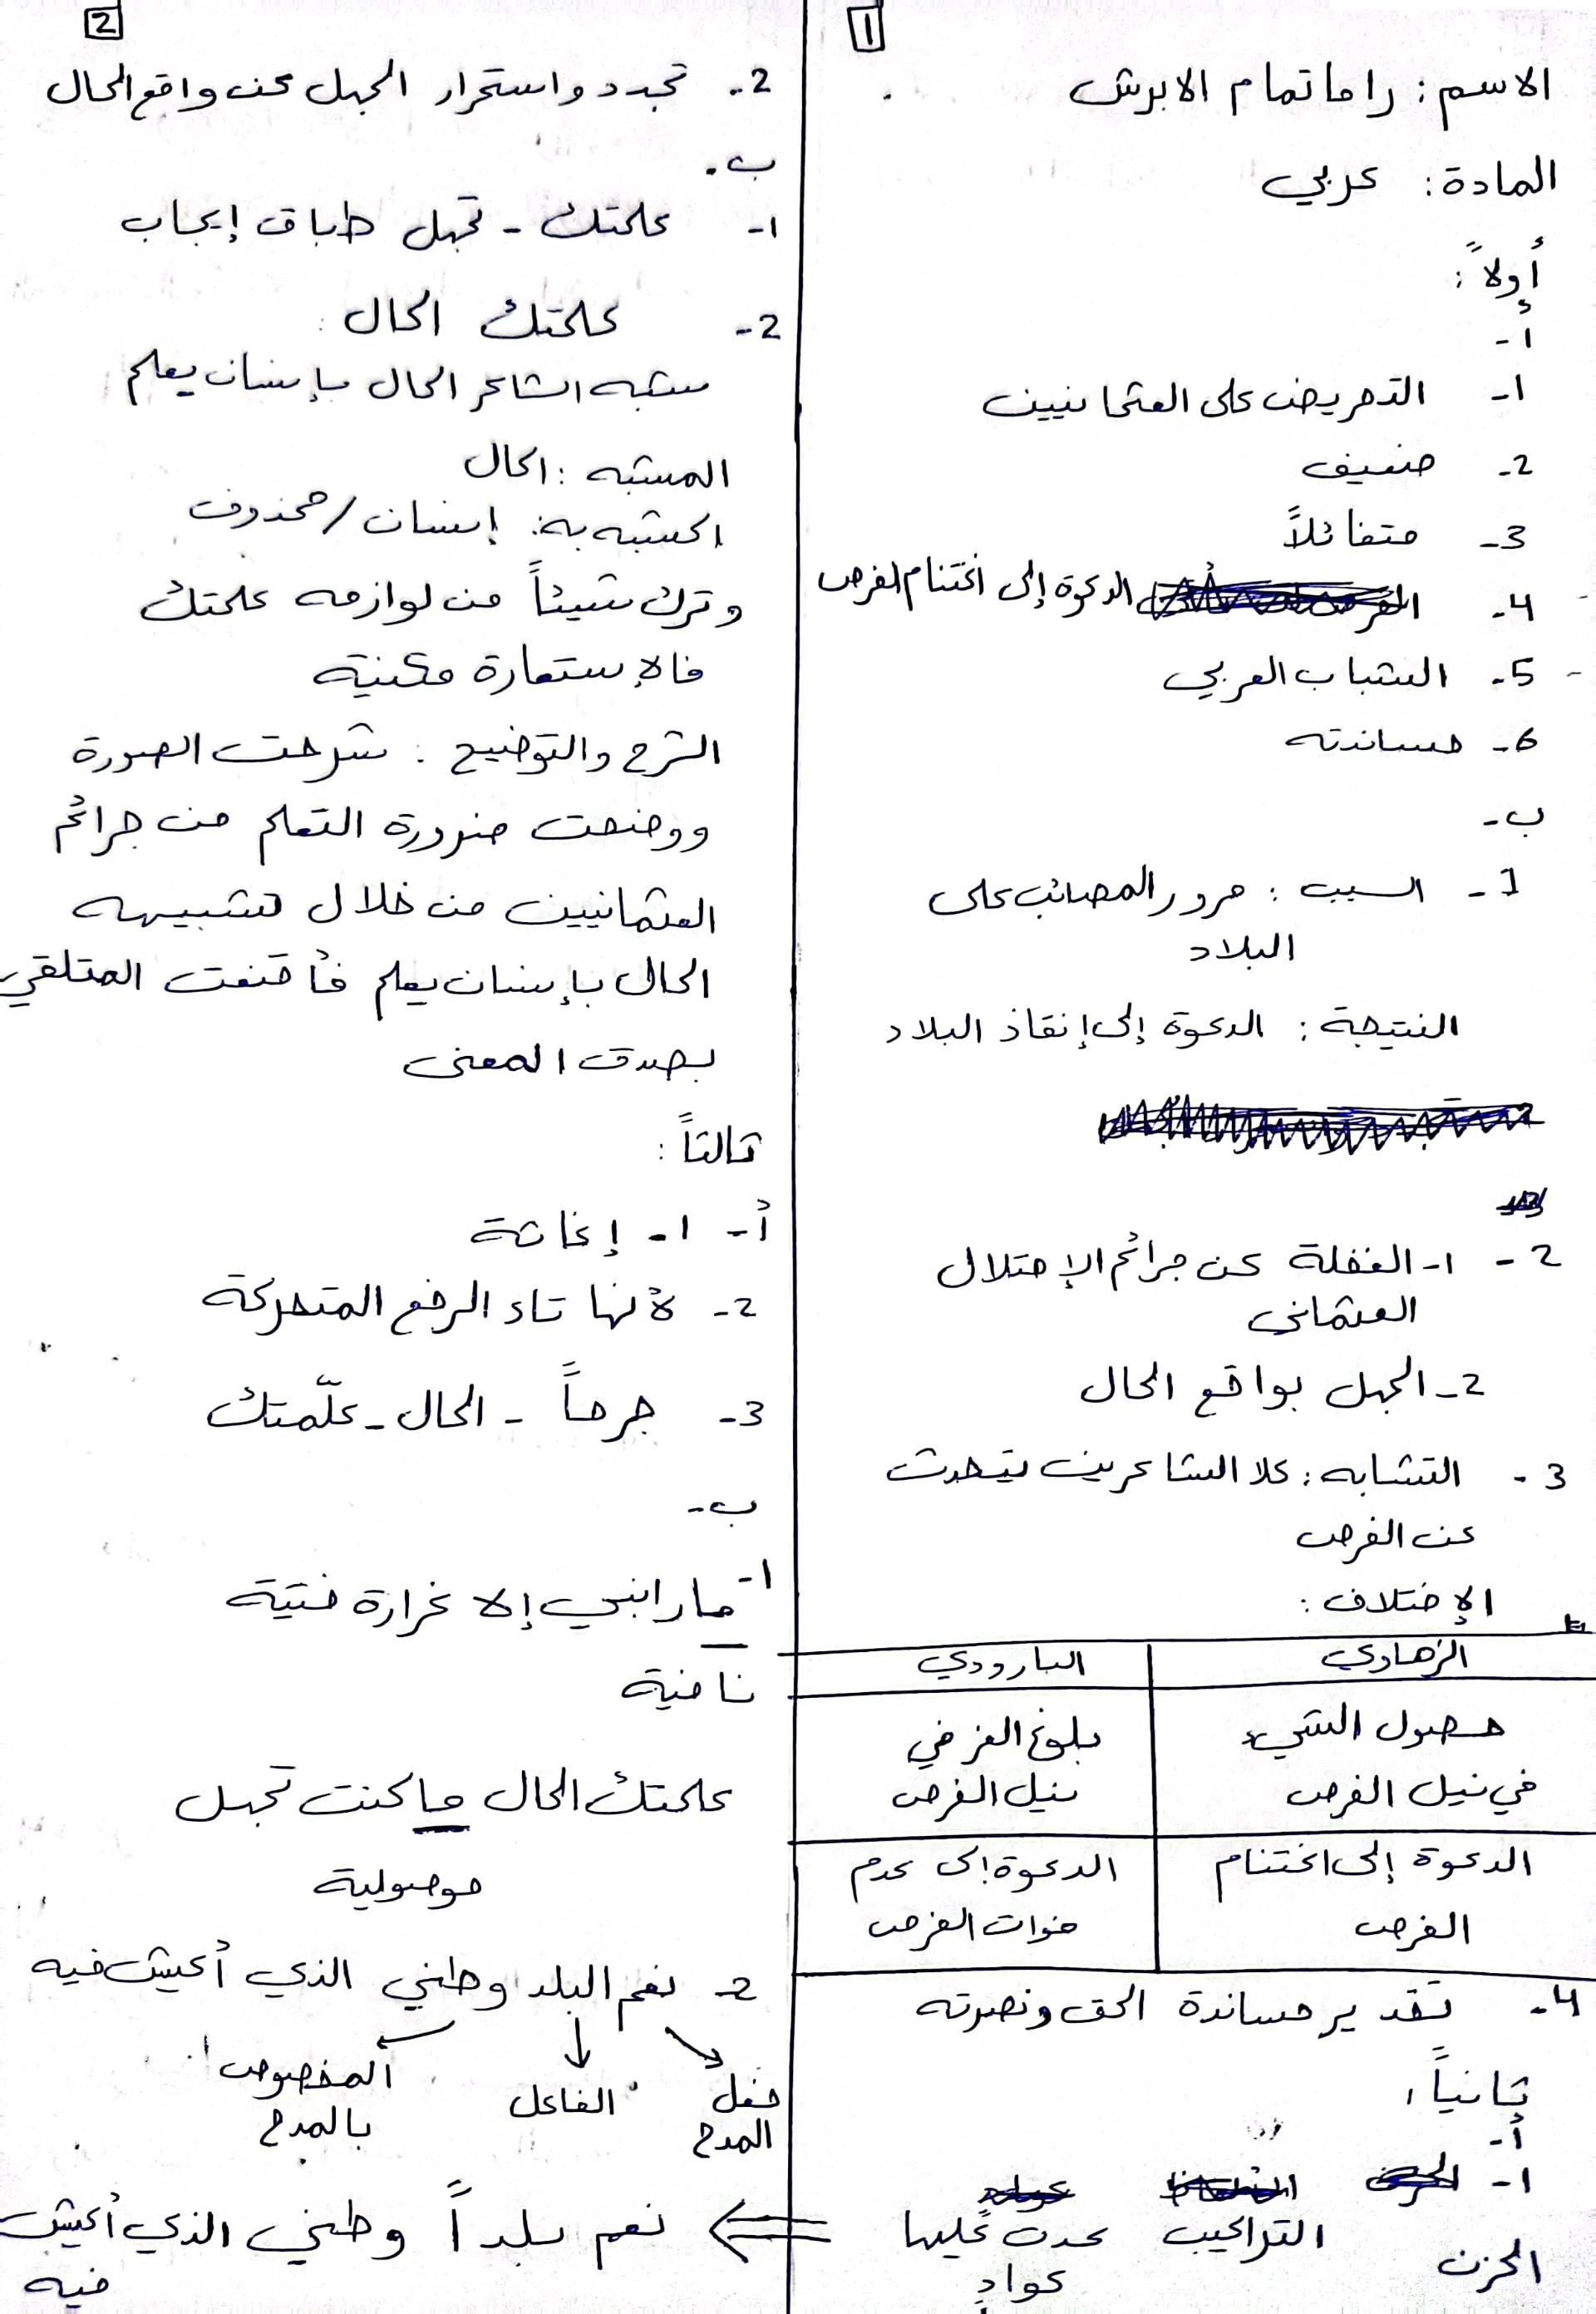 1
الاسم: راما تمام الابرش
المادة: عربي
أولاً:
أ-
1- التحريض على العثمانيين
2- ضعيف
3- متفائلاً
4- الدعوة إلى اغتنام الفرص
5- الشباب العربي
6- مساندته
ب-
1- السبب: مرور المصائب على
البلاد
النتيجة: الدعوة إلى إنقاذ البلاد
2- 1- الغفلة عن جرائم الإحتلال
العثماني
2- الجهل بواقع الحال
3- التشابه: كلا الشاعرين يتحدث
عن الفرص
الإختلاف:
الزهاوي البارودي
حصول الشيء بلوغ العز في
في نيل الفرص نيل الفرص
الدعوة إلى اغتنام الدعوة إلى عدم
الفرص فوات الفرص
4- تقدير مساندة الحق ونصرته
ثانياً:
أ-
1-
الحزن التراكيب عدت عليها
عواد
2
2- تجدد واستمرار الجهل عن واقع الحال
ب.
1- علمتك - تجهل طباق إيجاب
2- علمتك الحال:
شبه الشاعر الحال بإنسان يعلم
المشبه: الحال
المشبه به: إنسان/محذوف
وترك شيئاً من لوازمه علمتك
فالإستعارة مكنية
الشرح والتوضيح: شرحت الصورة
ووضحت ضرورة التعلم من جرائم
العثمانيين من خلال تشبيهه
الحال بإنسان يعلم فأقنعت المتلقي
بصدق المعنى
ثالثاً:
أ- 1- إغاثة
2- لأنها تاء الرفع المتحركة
3- جرحاً - الحال - علّمتك
ب-
1- ما رابني إلا غرارة فتية
نافية
علمتك الحال ما كنت تجهل
موصولية
2- نعم البلد وطني الذي أعيش فيه
فعل الفاعل المخصوص
المدح بالمدح
نعم بلداً وطني الذي أعيش
فيه